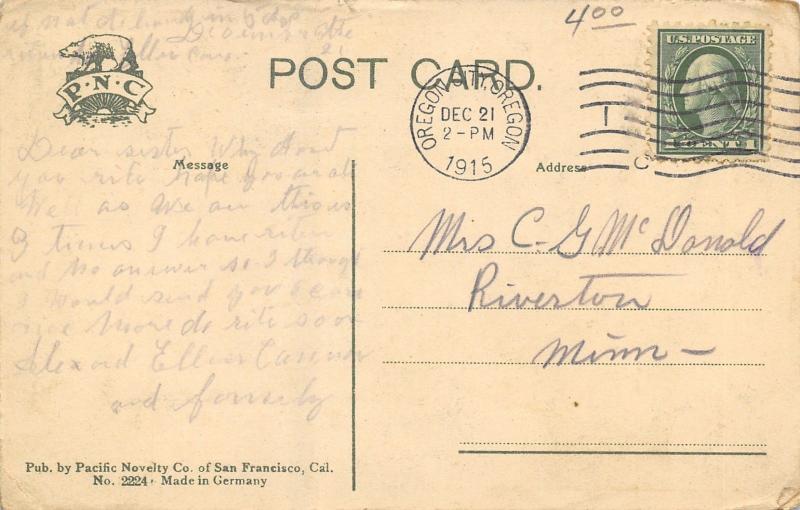 if not de in 5 dys
4⁰⁰
U.S. POSTAGE
P·N·C
POST CARD.
OREGON CITY, OREGON
DEC 21
2-PM
1915
Message
Address
Dear sister Why dont
you rite hope you ar all
Well as We ar this is
3 times I have riten
and No answer so I though
I Would send you a card
once More do rite soon
Alex and Ellen Cannon
and family
Mrs C- G McDonald
Riverton
Minn-
Pub. by Pacific Novelty Co. of San Francisco, Cal.
No. 2224. Made in Germany